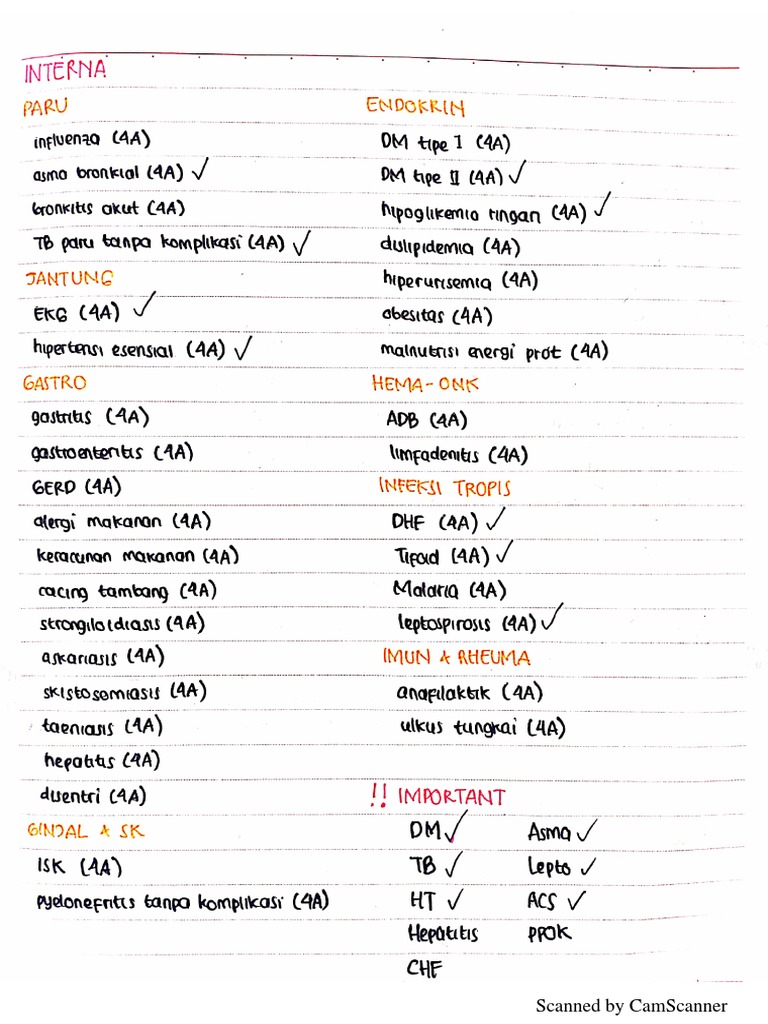 INTERNA
PARU
influenza (4A)
asma bronkial (4A) ✓
bronkitis akut (4A)
TB paru tanpa komplikasi (4A) ✓
JANTUNG
EKG (4A) ✓
hipertensi esensial (4A) ✓
GASTRO
gastritis (4A)
gastroenteritis (4A)
GERD (4A)
alergi makanan (4A)
keracunan makanan (4A)
cacing tambang (4A)
strongiloidiasis (4A)
askariasis (4A)
skistosomiasis (4A)
taeniasis (4A)
hepatitis (4A)
disentri (4A)
GINJAL & SK
ISK (4A)
pyelonefritis tanpa komplikasi (4A)
ENDOKRIN
DM tipe I (4A)
DM tipe II (4A) ✓
hipoglikemia ringan (4A) ✓
dislipidemia (4A)
hiperurisemia (4A)
obesitas (4A)
malnutrisi energi prot (4A)
HEMA-ONK
ADB (4A)
limfadenitis (4A)
INFEKSI TROPIS
DHF (4A) ✓
Tifoid (4A) ✓
Malaria (4A)
leptospirosis (4A) ✓
IMUN & RHEUMA
anafilaktik (4A)
ulkus tungkai (4A)
!! IMPORTANT
DM ✓ Asma ✓
TB ✓ Lepto ✓
HT ✓ ACS ✓
Hepatitis PPOK
CHF
Scanned by CamScanner